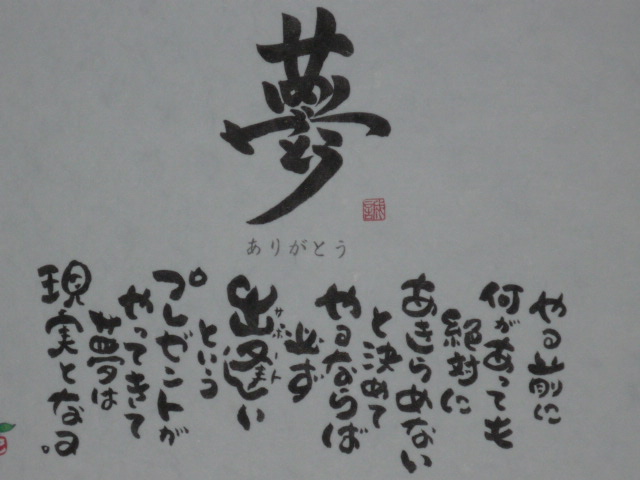 夢
ありがとう
やる前に
何があっても
絶対に
あきらめない
と決めて
やるならば
必ず
出逢い
サポート
という
プレゼントが
やってきて
夢は
現実となる。